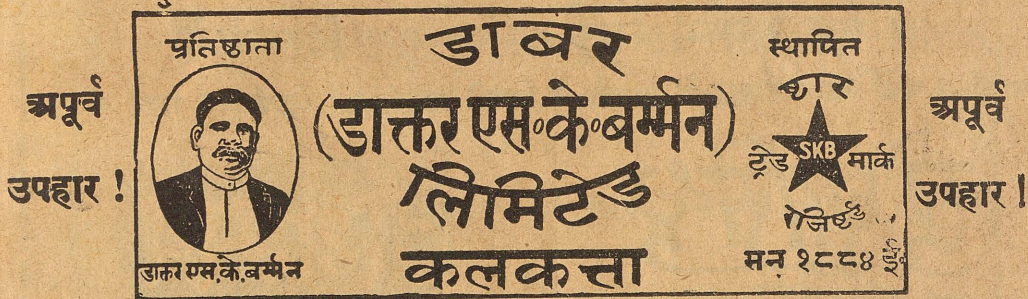 अपूर्व
उपहार !
प्रतिष्ठाता
डाक्तर एस. के. बर्म्मन
डाबर
(डाक्तर एस॰ के॰ बर्म्मन)
लिमिटेड
कलकत्ता
स्थापित
ष्टार
ट्रेड SKB मार्क
रेजिष्टर्ड
सन् १८८४ ई॰
अपूर्व
उपहार !